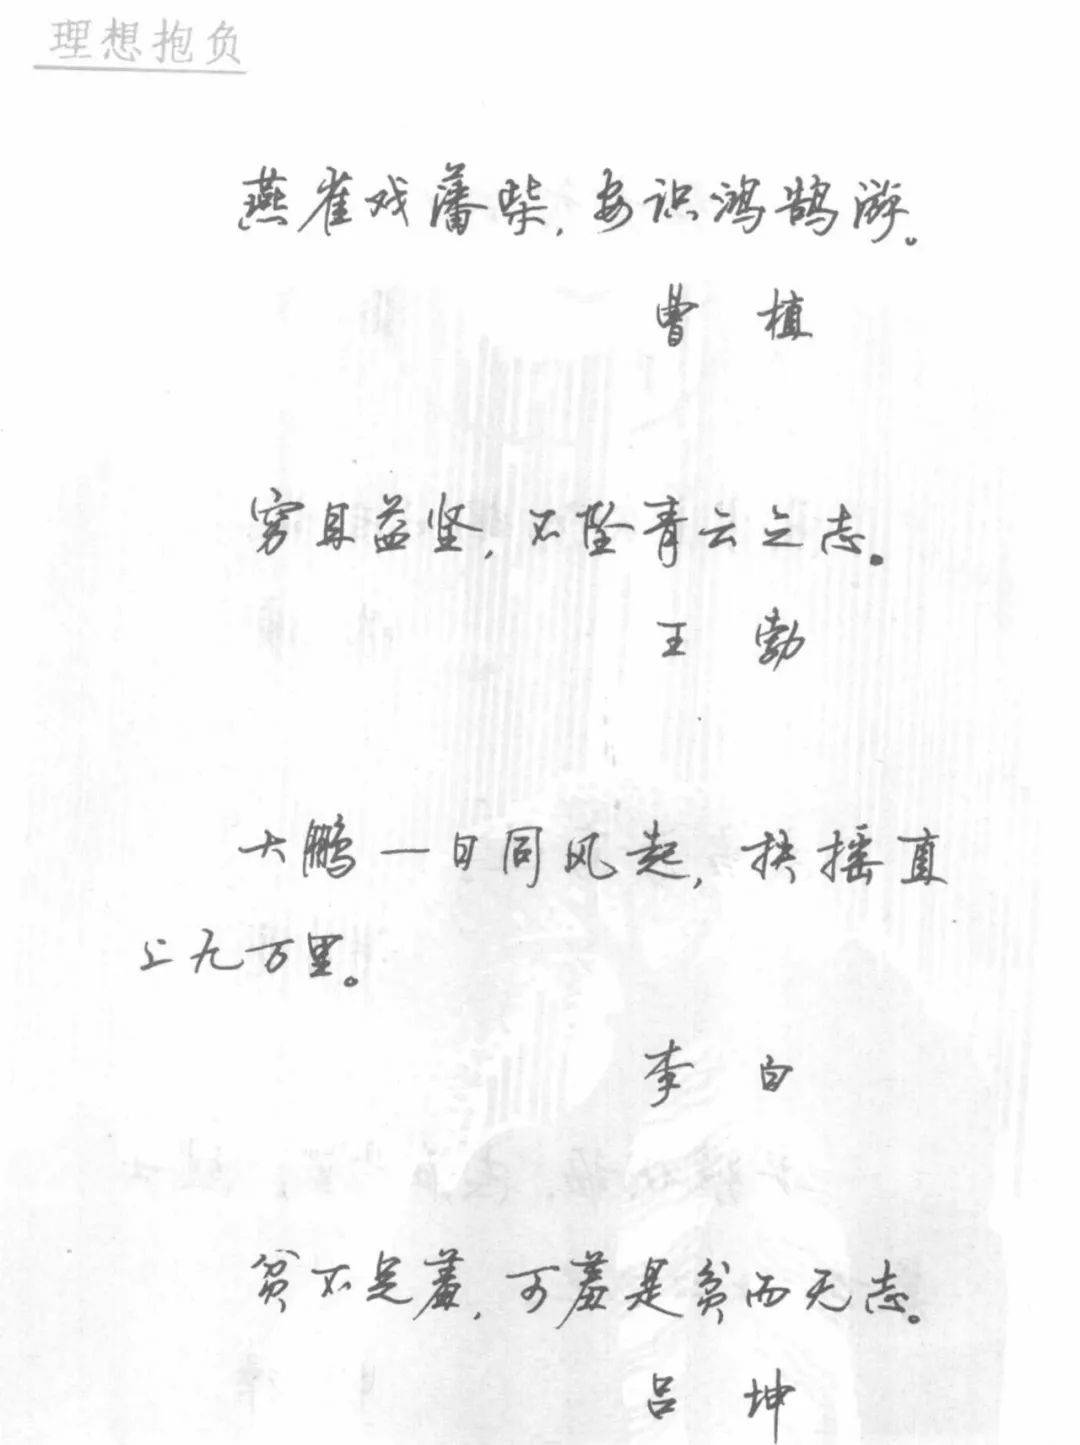 理想抱负
燕雀戏藩柴,安识鸿鹄游。
曹 植
穷且益坚,不坠青云之志。
王 勃
大鹏一日同风起,扶摇直
上九万里。
李 白
贫不足羞,可羞是贫而无志。
吕 坤